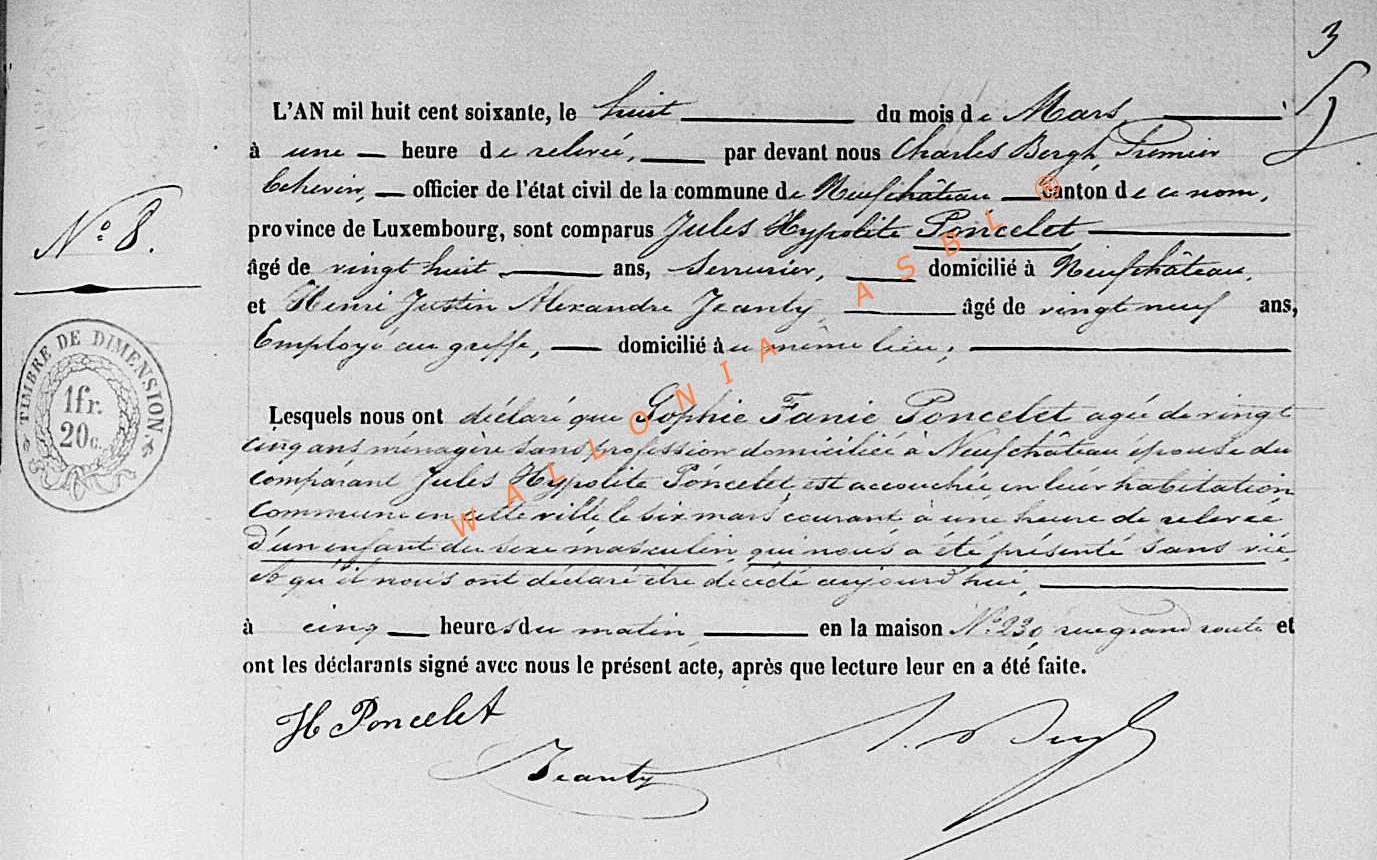 3
L'AN mil huit cent soixante, le huit du mois de Mars,
à une heure de relevée, par devant nous Charles Bergh, Premier
Echevin, officier de l'état civil de la commune de Neufchâteau Canton de ce nom,
N.° 8.
province de Luxembourg, sont comparus Jules Hypolite Poncelet
âgé de vingt huit ans, Serrurier, domicilié à Neufchâteau,
et Henri Justin Alexandre Jeanty, âgé de vingt neuf ans,
Employé au greffe, domicilié au même lieu;
TIMBRE DE DIMENSION
1fr.
20c.
Lesquels nous ont déclaré que Sophie Fanie Poncelet agée de vingt
cinq ans ménagère sans profession domiciliée à Neufchâteau épouse du
comparant Jules Hypolite Poncelet, est accouchée, en leur habitation
Commune en cette ville le six mars courant, à une heure de relevée
d'un enfant du sexe masculin, qui nous a été présenté sans vie,
et qu'il nous ont déclaré être décédé aujourd'hui,
à cinq heures du matin, en la maison N.° 230, rue grand route et
ont les déclarants signé avec nous le présent acte, après que lecture leur en a été faite.
H Poncelet
Jeanty
WALLONIA ASBL ®